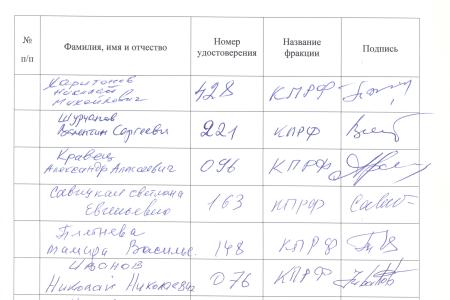 № п/п Фамилия, имя и отчество Номер удостоверения Название фракции Подпись
Харитонов
Николай
Михайлович 428 КПРФ
Шурчанов
Валентин Сергееви 221 КПРФ
Кравец
Александр Алексеевич 096 КПРФ
Савицкая Светлана
Евгеньевна 163 КПРФ Савит
Плетнева
Тамара Василье. 148 КПРФ
Иванов
Николай Николаевич 076 КПРФ